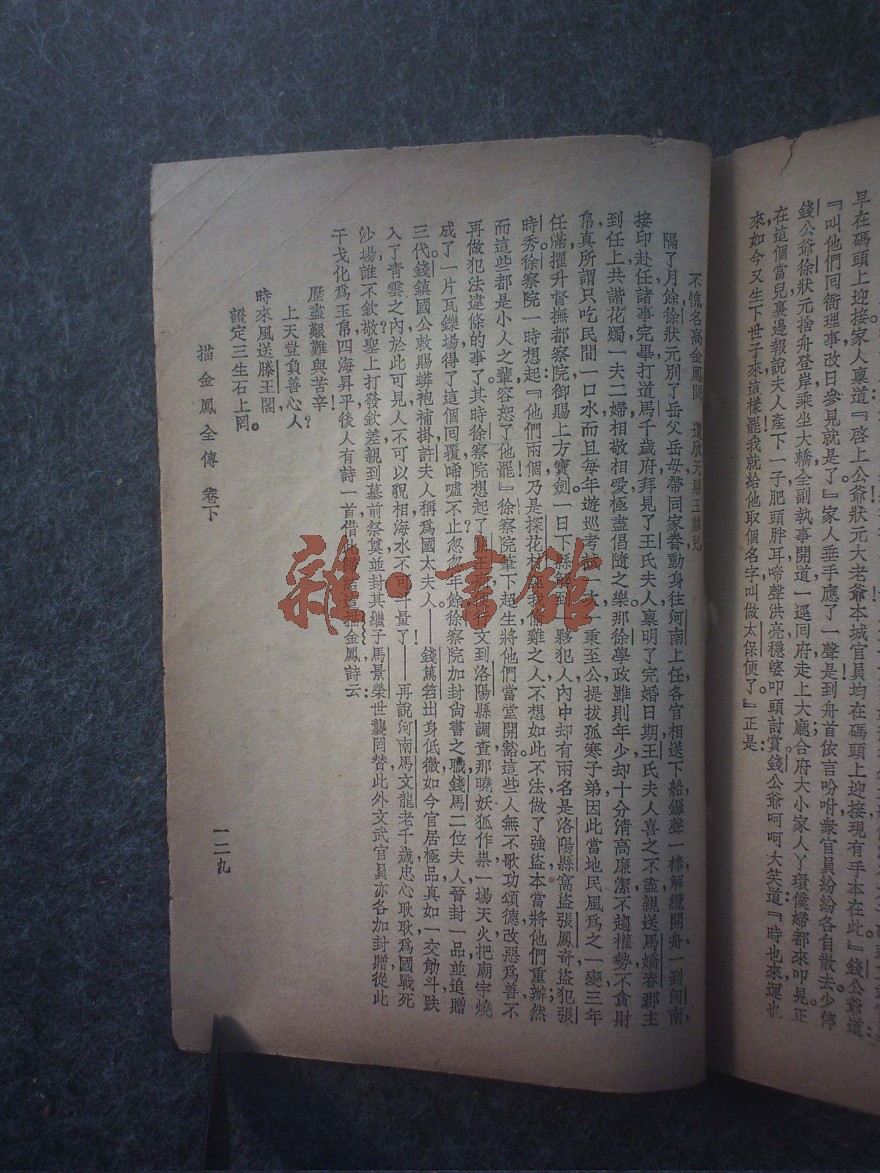 早在碼頭上迎接家人稟道『啓上公爺狀元大老爺本城官員均在碼頭上迎接現有手本在此』錢公爺道
『叫他們回衙理事改日參見就是了』家人垂手應了一聲是到舟首依言吩咐衆官員紛紛各自散去少停
錢公爺徐狀元捨舟登岸乘坐大轎全副執事開道一逕回府走上大廳合府大小家人丫環僕婦都來叩見正
在這個當兒裏邊報說夫人產下一子肥頭胖耳啼聲洪亮穩婆叩頭討賞錢公爺呵呵大笑道『時也來運也
來如今又生下世子來這樣罷我就給他取個名字叫做太保便了。』正是：
不愧名高金鳳闕 還欣天賜玉麟兒
隔了月餘徐狀元別了岳父岳母帶同家眷動身往河南上任各官相送下船鑼聲一棒解纜開舟一到河南，
接印赴任諸事完畢打道馬千歲府拜見了王氏夫人稟明了完婚日期王氏夫人喜之不盡親送馬嬌春郡主
到任上共諧花燭一夫二婦相敬相愛極盡倡隨之樂那徐學政雖則年少却十分清高廉潔不趨權勢不貪財
帛真所謂只吃民間一口水而且每年遊巡考試一秉至公提拔孤寒子弟因此當地民風爲之一變三年
任滿擢升督撫都察院御賜上方寶劍一日下縣解到一夥犯人內中却有兩名是洛陽縣窩盜張鳳奇盜犯張
時秀徐察院一時想起『他們兩個乃是探花村盜我偷雞之人不想如此不法做了強盜本當將他們重辦然
而這些都是小人之輩容恕了他罷』徐察院筆下超生將他們當堂開豁這些人無不歌功頌德改惡爲善不
再做犯法違條的事了其時徐察院想起了行文到洛陽縣調查那曉妖狐作祟一場天火把廟宇燒
成了一片瓦鑠場得了這個回覆唏噓不止忽忽年餘徐察院加封尙書之職錢馬二位夫人晉封一品並追贈
三代錢鎮國公敕賜蟒袍補掛許夫人稱爲國太夫人——錢篤笤出身低微如今官居極品真如一交觔斗跌
入了青雲之內於此可見人不可以貌相海水不可斗量了——再說河南馬文龍老千歲忠心耿耿爲國戰死
沙場誰不欽敬聖上打發欽差親到墓前祭奠並封其繼子馬景榮世襲罔替此外文武官員亦各加封贈從此
干戈化爲玉帛四海昇平後人有詩一首借此描金鳳詩云：
歷盡艱難與苦辛，
上天豈負善心人？
時來風送滕王閣，
證定三生石上罔。
描金鳳全傳 卷下
一二九
雜·書館